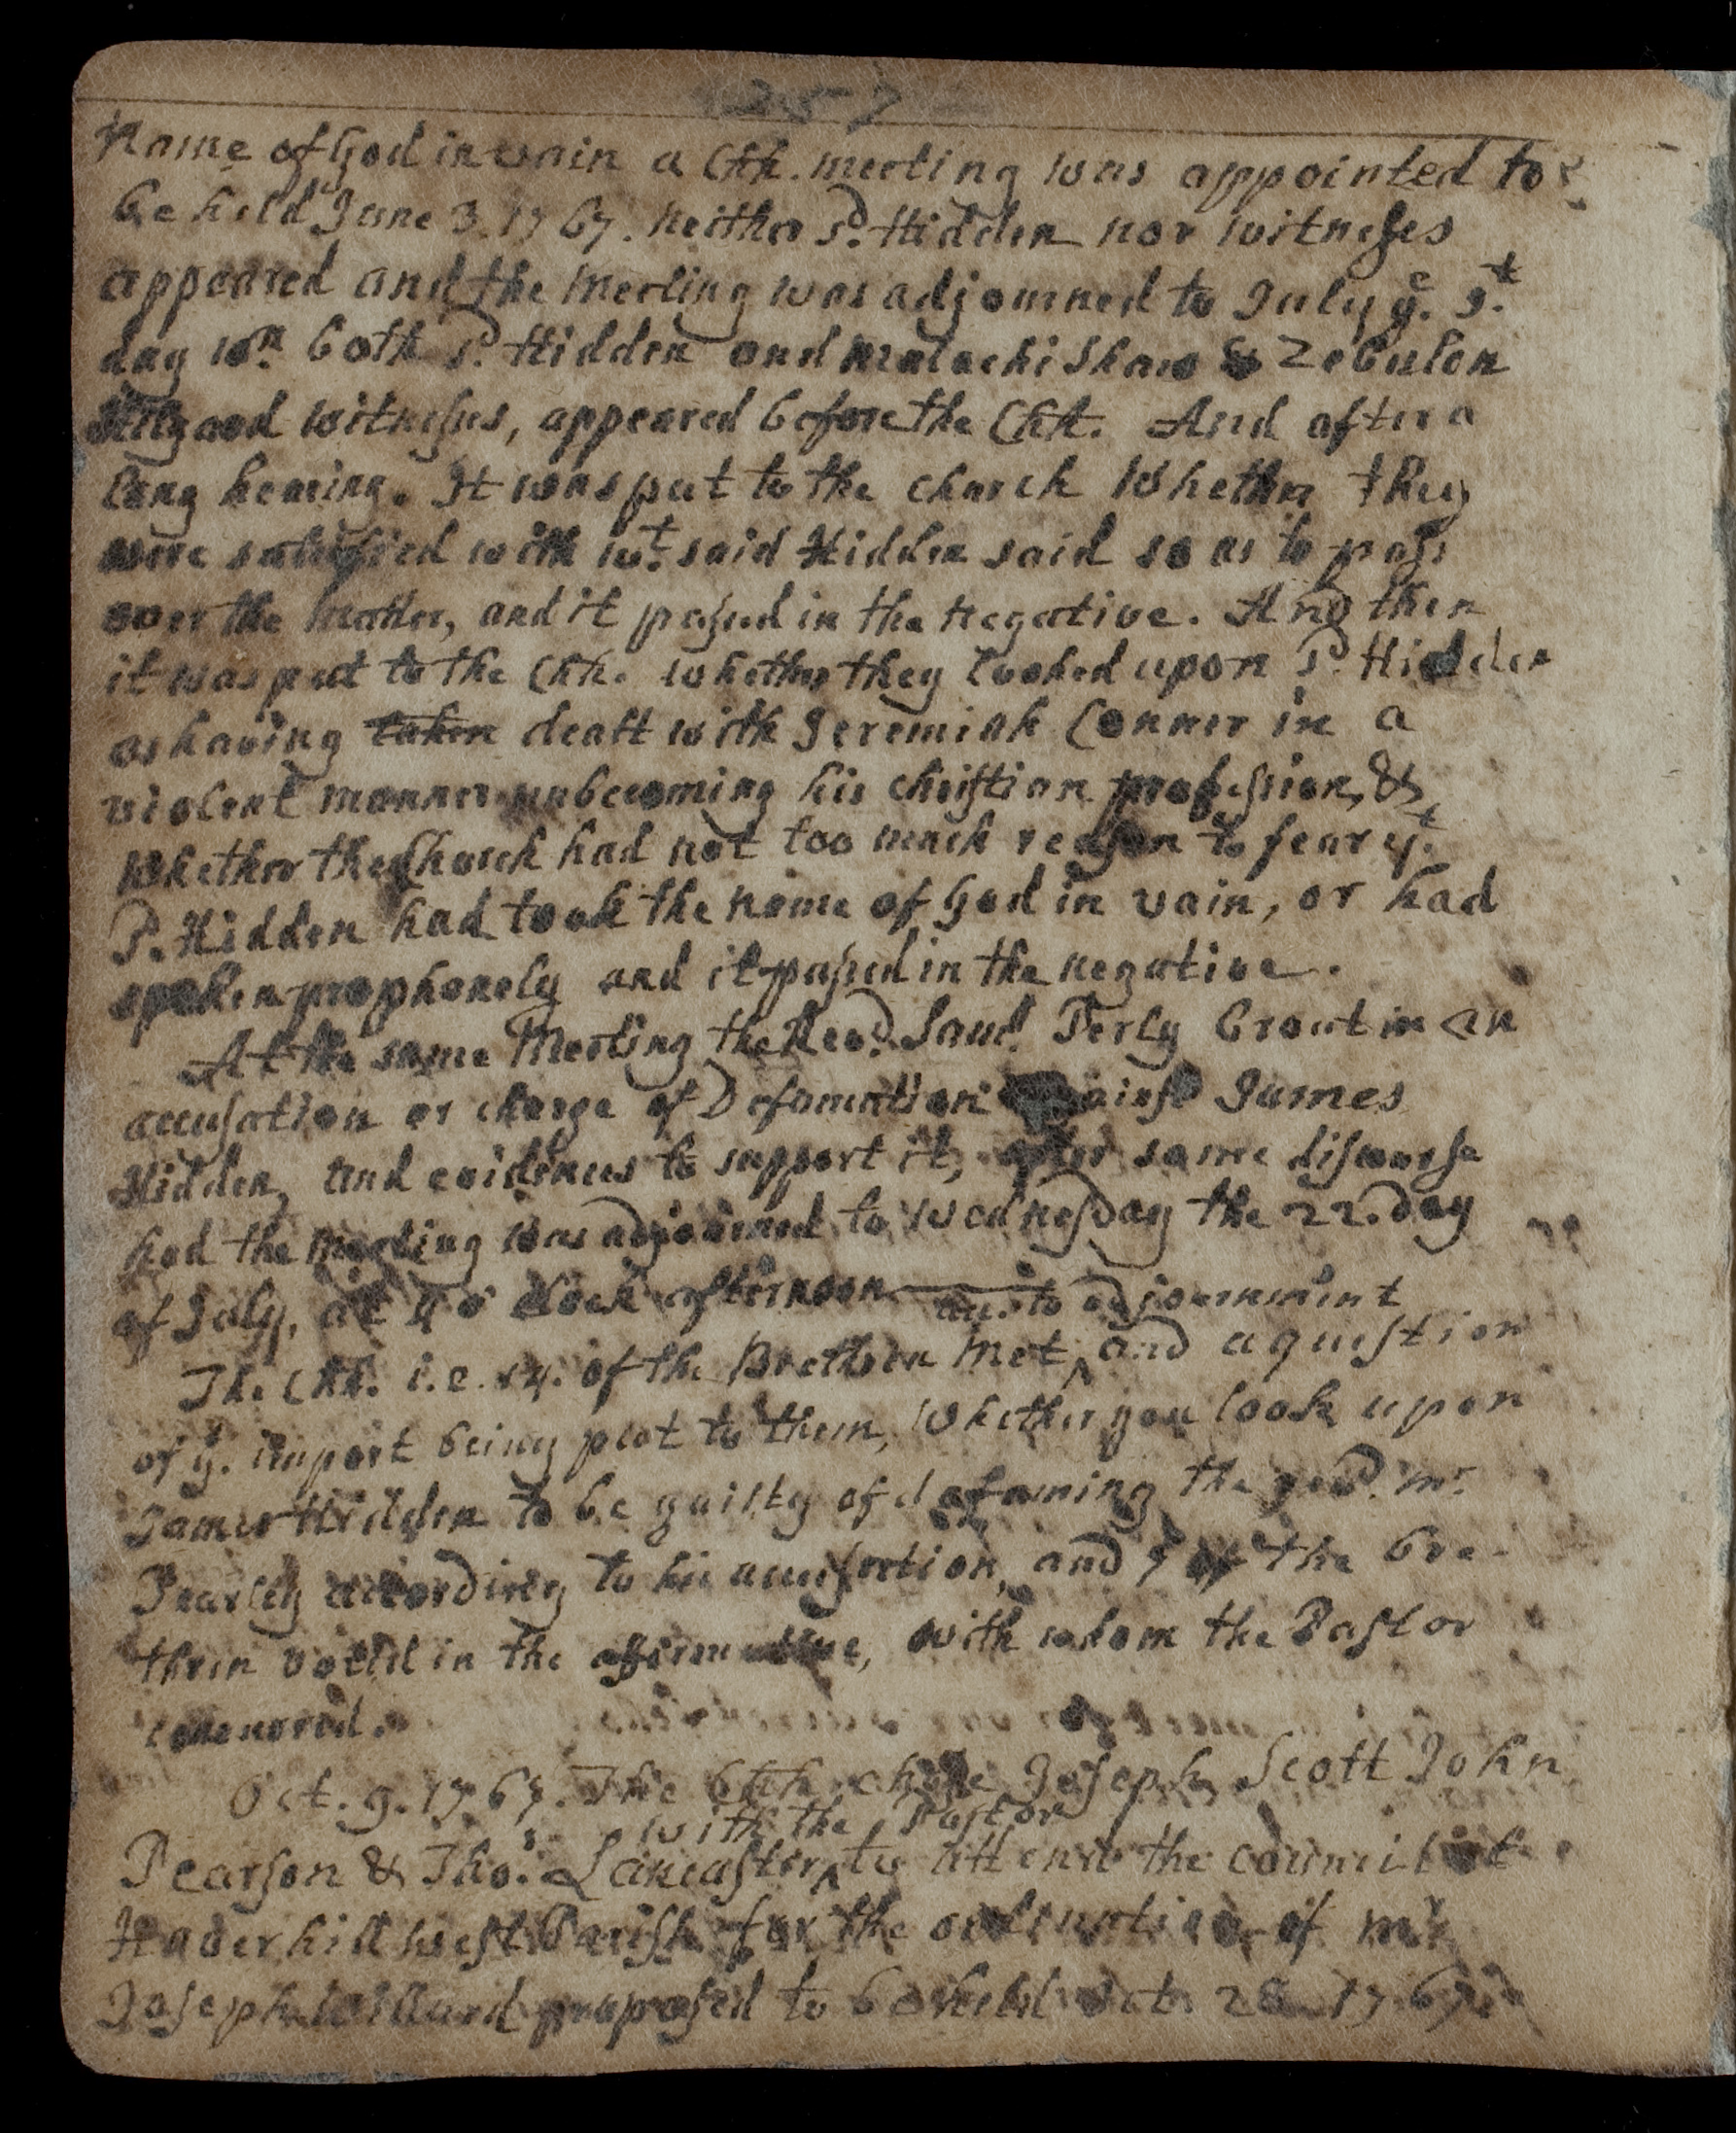 257
Name of God in vain a Chh. meeting was appointed to
be held June 3. 1767. Neither sd. Hidden nor witnesses
appeared and the Meeting was adjourned to July ye. 9.t
day wn. both sd. Hidden and Malachi Shaw & Zebulon
witnesses, appeared before the Chh. And after a
long hearing. It was put to the church Whether they
were satisfied with wt. said Hidden said so as to pass
over the matter, and it passed in the Negative. And then
it was put to the Chh. whether they looked upon sd. Hidden
as having taken dealt with Jeremiah Conner in a
violent manner unbecoming his christian profession, &
Whether the Church had not too much reason to fear yt.
sd. Hidden had took the name of God in vain, or had
spoken prophanely and it passed in the negative.
At the same Meeting the Revd. Saml. Perly brout in an
accusation or charge of Defamation against James
Hidden, and evidences to support it, after some discourse
had the meeting was adjourned to Wednesday the 22. day
of July, at 4 o clock afternoon
acc. to adjournment
The Chh. i.e. 14. of the Brethren Met, and a question
of ys. import being put to them, Whether you look upon
James Hidden to be guilty of defaming the revd. mr.
Pearley according to his accusation, and 7 of the bre-
thren voted in the affirmative, with whom the Pastor
concurred.
Oct. 9. 1767. The Chh. chose Joseph Scott John
with the Pastor
Pearson & Tho.s Lancaster, to attend the council at
Haverhill west Parish for the ordination of mr.
Joseph Willard proposed to be held Oct. 28. 1767.